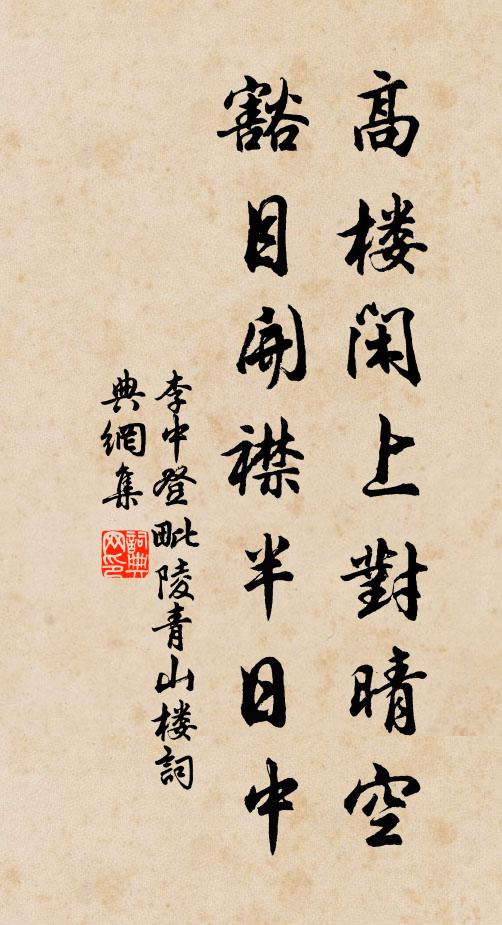 高楼闲上對晴空
豁目開襟半日中
李中登毗陵青山楼詞
典網集
詞典网印